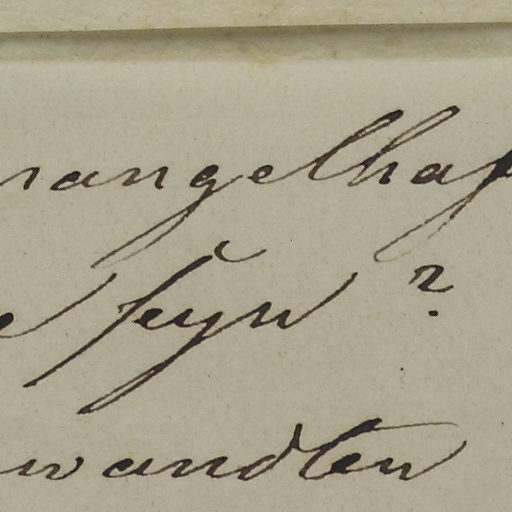 mangelhaf
e seyn?
wandten